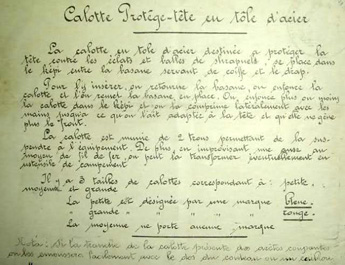 Calotte Protège-tête en tôle d'acier
La calotte en tôle d'acier destinée à protéger la
tête contre les éclats et balles de shrapnels, se place dans
le képi entre la basane servant de coiffe et le drap.
Pour l'y insérer, on retourne la basane, on enfonce la
calotte et l'on remet la basane en place. On enfonce plus ou moins
la calotte dans le képi et on la comprime latéralement avec les
mains jusqu'à ce qu'on l'ait adaptée à la tête et qu'elle ne gêne
plus le front.
La calotte est munie de 2 trous permettant de la sus-
pendre à l'équipement. De plus, en improvisant une anse au
moyen de fil de fer, on peut la transformer éventuellement en
ustensile de campement.
Il y a 3 tailles de calottes correspondant à petite,
moyenne et grande.
La petite est désignée par une marque bleue.
" grande " " " rouge.
La moyenne ne porte aucune marque
Nota: Si la tranche de la calotte présente des arêtes coupantes
on les émoussera facilement avec le dos du couteau ou un caillou